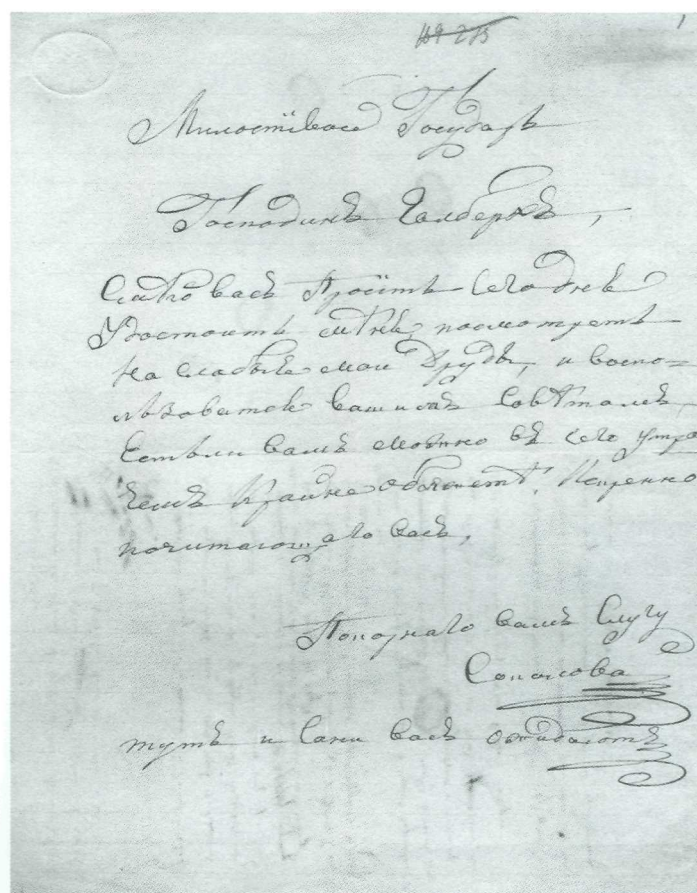 169 215
1
Милостївой Государь
Господинъ Галберхъ,
Смѣю васъ Просїть Сего дня
Удостоить мѣня посмотреть
на слабыя мои Труды, и воспо=
льзоватся вашимъ Совѣтомъ,
Естьли вамъ можно въ сего утра
чемъ Крайне обяжетѣ, Искренно
почитающаго васъ,
Покорнаго вамъ Слугу
Соколова
тутъ и Сани васъ ожидаютъ